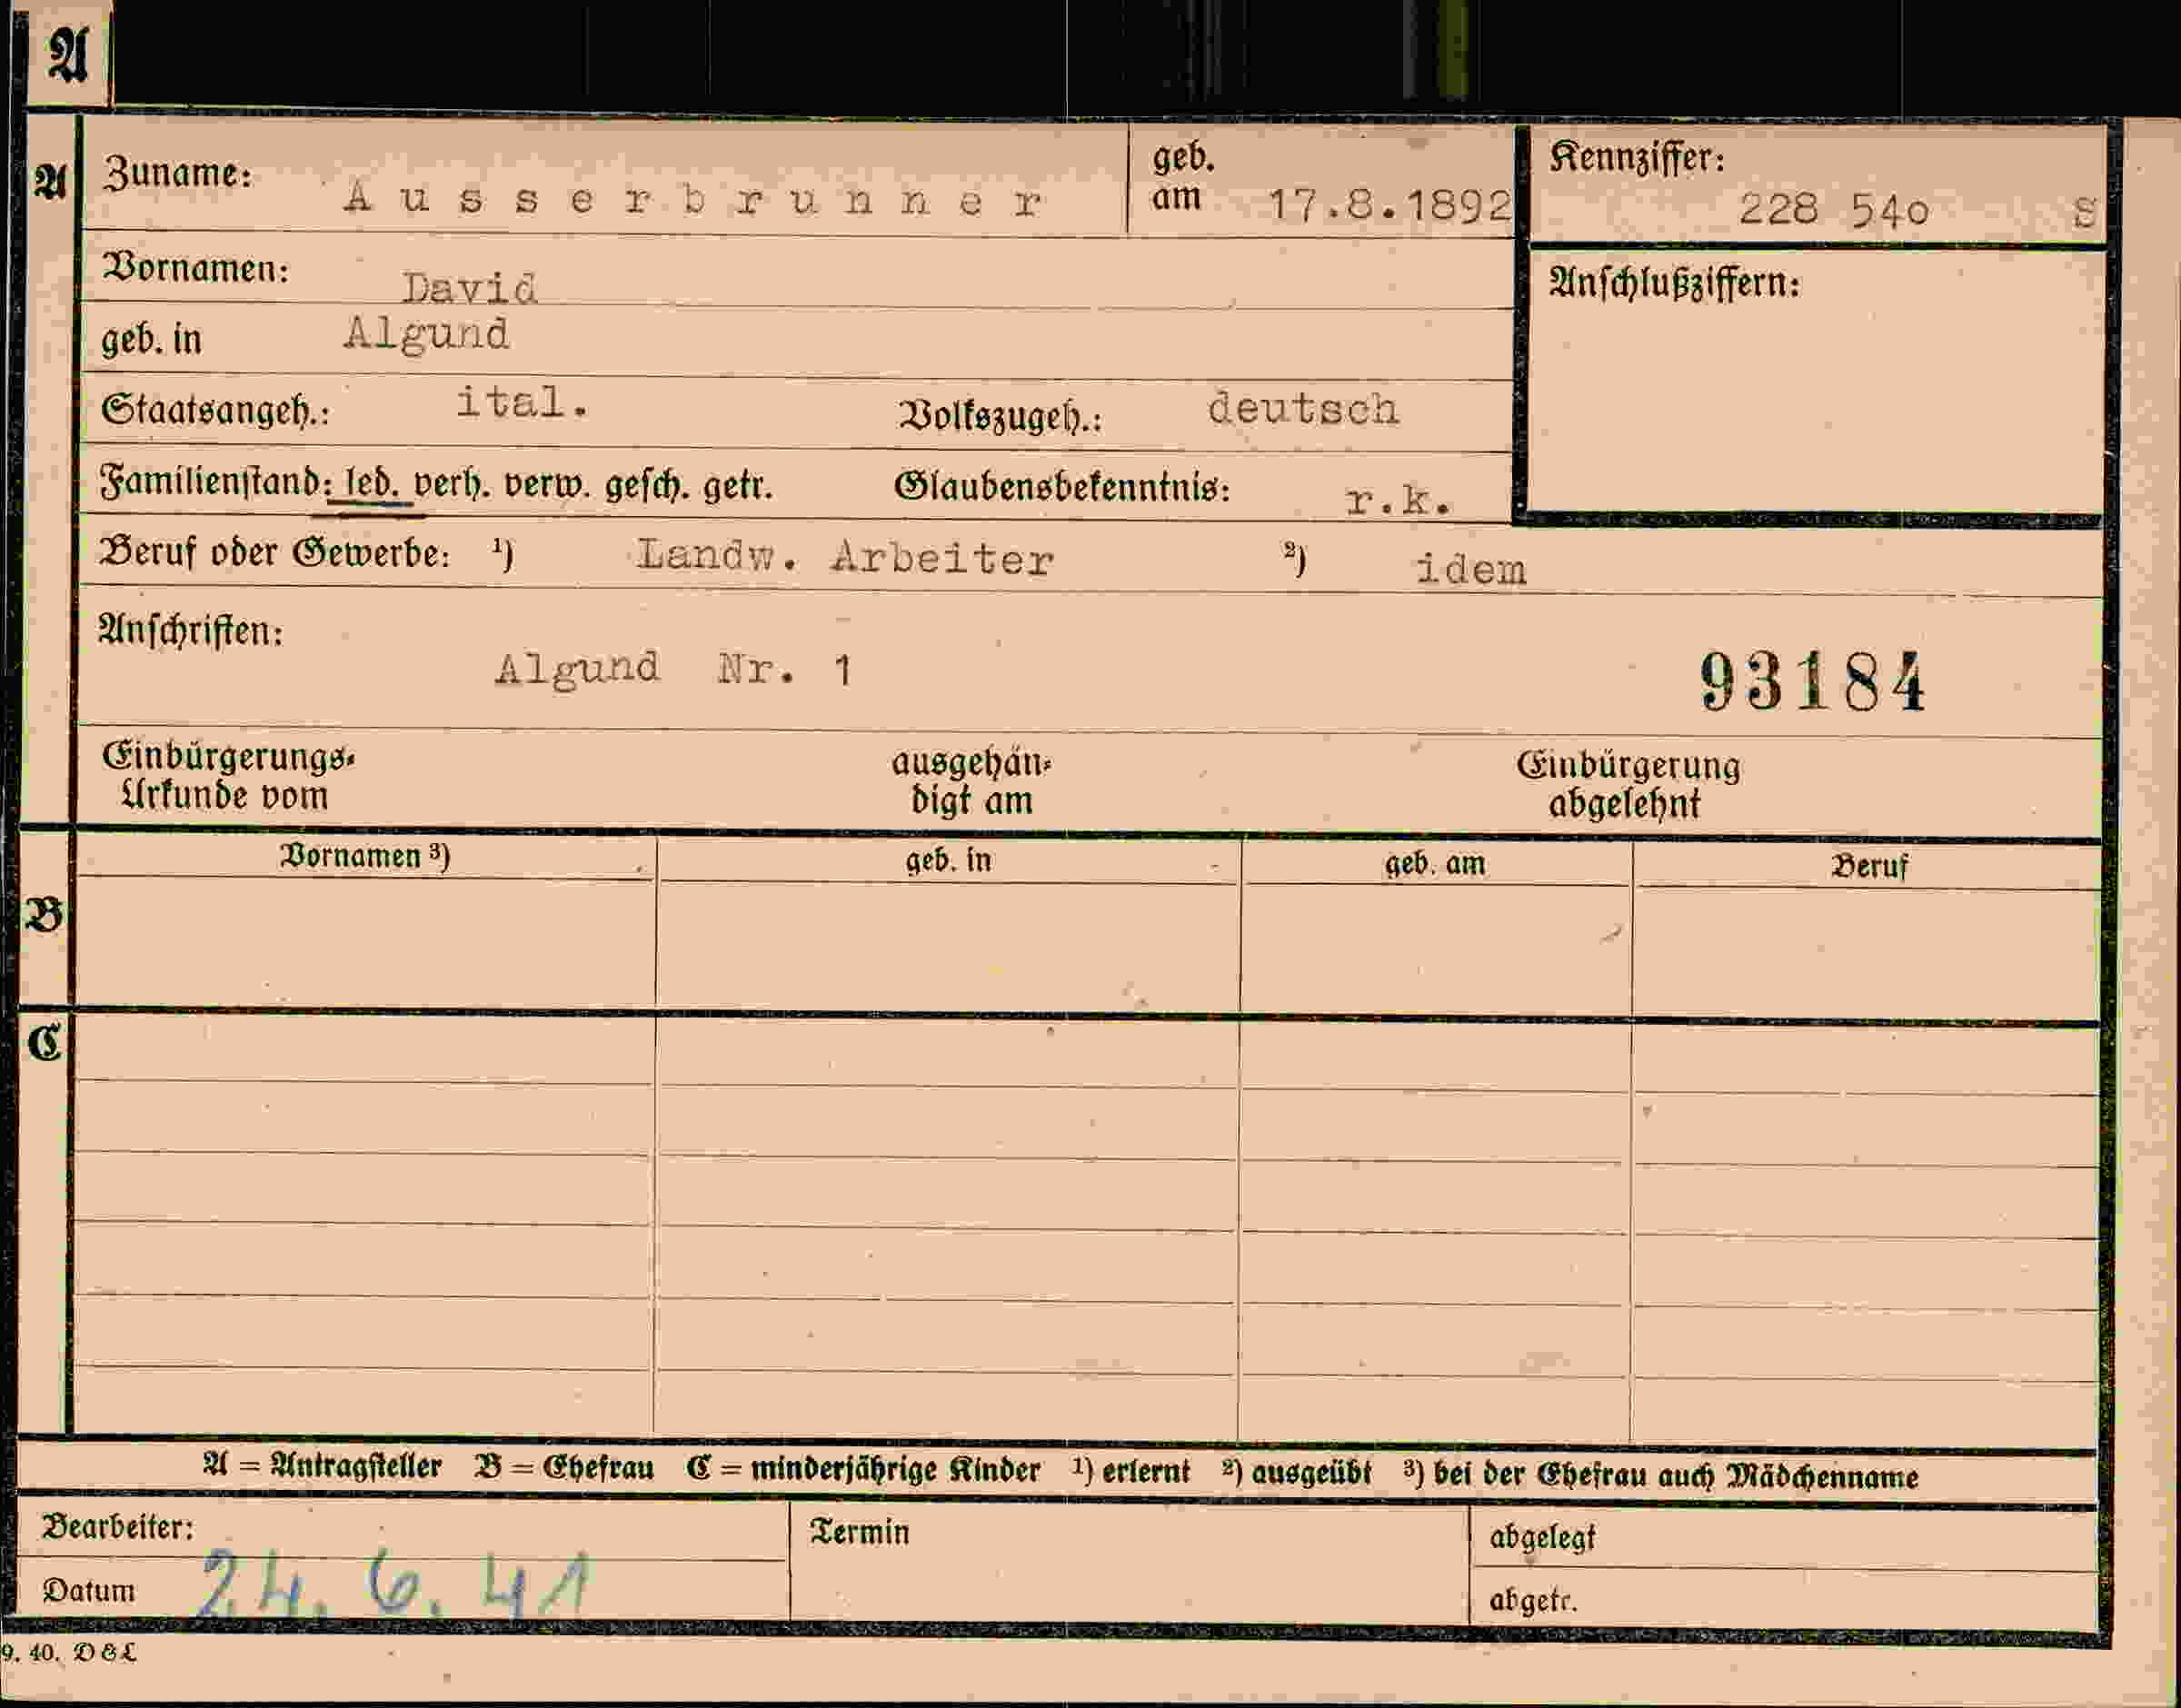 A
A Zuname: Ausserbrunner geb. am 17.8.1892 Kennziffer: 228 54o S
Vornamen: David Anschlußziffern:
geb. in Algund
Staatsangeh.: ital. Volkszugeh.: deutsch
Familienstand: led. verh. verw. gesch. getr. Glaubensbekenntnis: r.k.
Beruf oder Gewerbe: ¹) Landw. Arbeiter ²) idem
Anschriften: Algund Nr. 1 93184
Einbürgerungs- ausgehän- Einbürgerung
Urkunde vom digt am abgelehnt
Vornamen ³) geb. in geb. am Beruf
B
C
A = Antragsteller B = Ehefrau C = minderjährige Kinder ¹) erlernt ²) ausgeübt ³) bei der Ehefrau auch Mädchenname
Bearbeiter: Termin abgelegt
Datum 24. 6. 41 abgetr.
9. 40. D&L